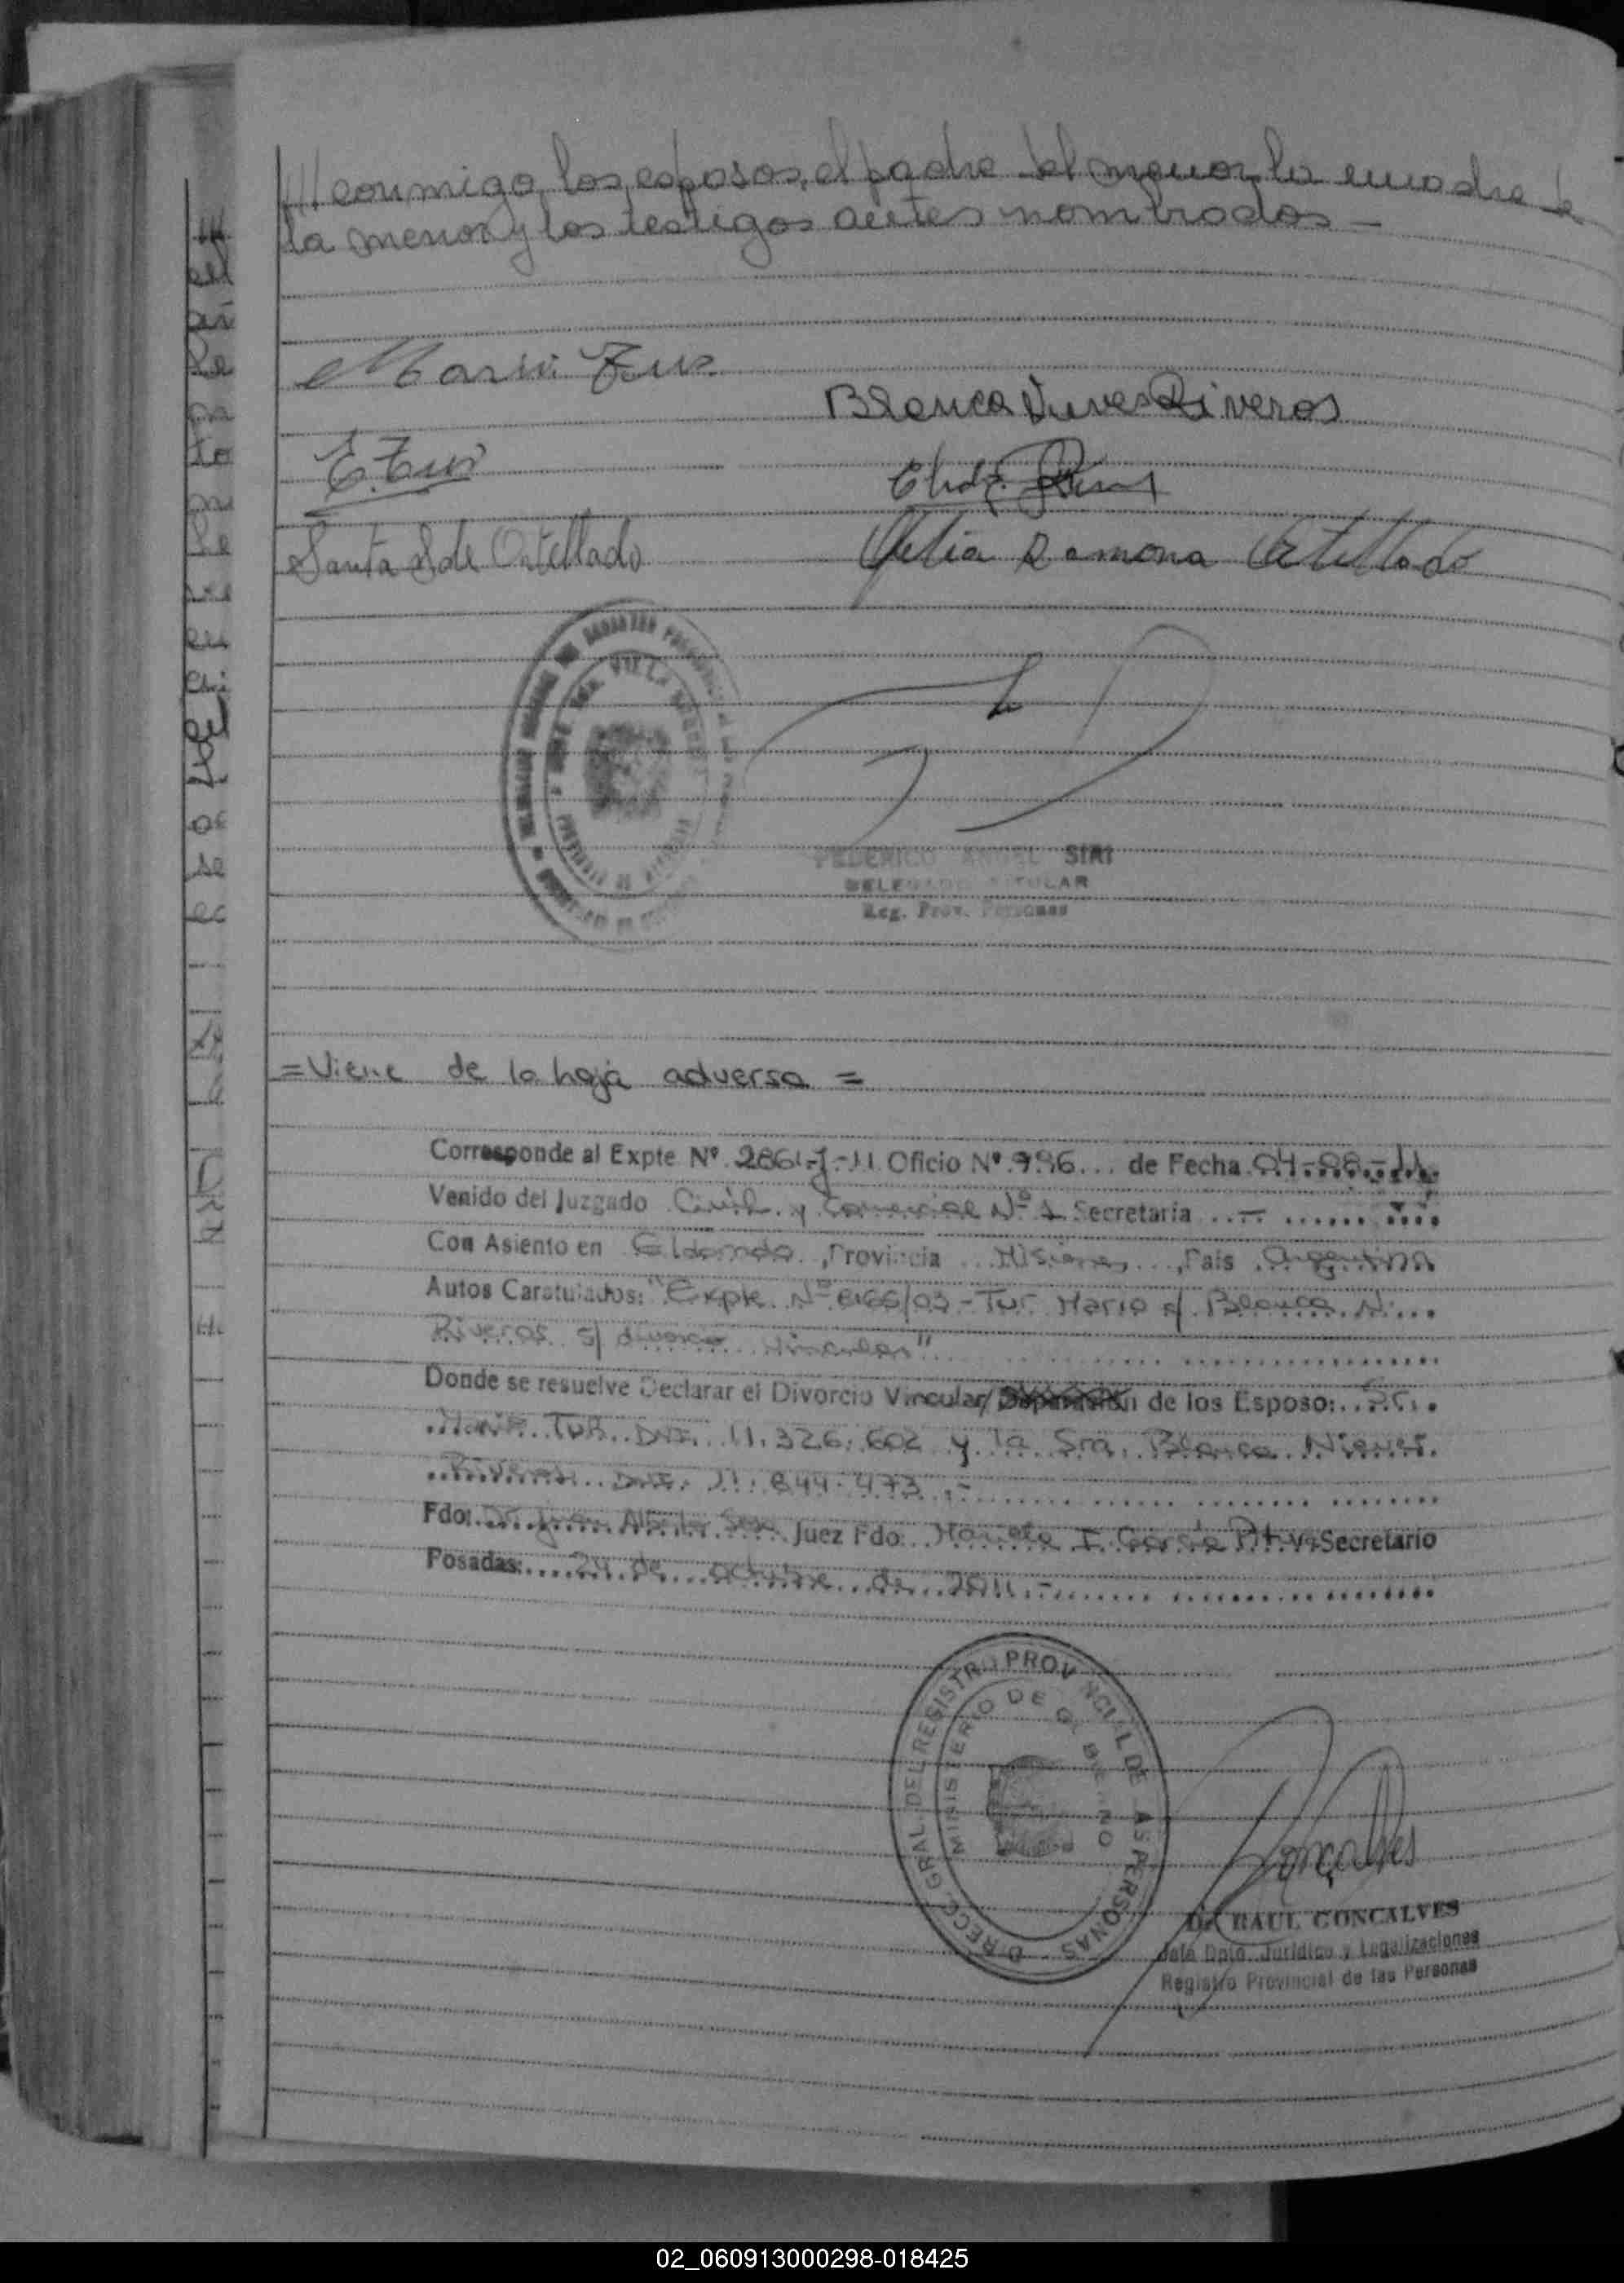 /// conmigo, los esposos, el padre del menor, la madre de
la menor y los testigos antes nombrados —
Mario Tur
Blanca Nieves Riveros
E. Tur
Santa S de Ortellado
Ramona Ortellado
FEDERICO ANGEL SIRI
DELEGADO TITULAR
Reg. Prov. Personas
= Viene de la hoja adversa =
Corresponde al Expte Nº 2861-J-11 Oficio Nº 996 de Fecha 04-08-11
Venido del Juzgado Civil y Comercial Nº 1 Secretaria —
Con Asiento en Eldorado, Provincia Misiones, País Argentina
Autos Caratulados: "Expte Nº /03 - Tur Mario c/ Blanca N.
Riveros s/ divorcio vincular"
Donde se resuelve Declarar el Divorcio Vincular/ Separación de los Esposo: Sr.
Mario TUR DNI. 11.326.602 y la Sra. Blanca Nieves
Riveros DNI. 11.844.473.-
Fdo: Dr. Juan Alberto Juez Fdo: Mariela I. García Secretario
Posadas: 24 de octubre de 2011.-
DIRECC. GRAL. DEL REGISTRO PROVINCIAL DE LAS PERSONAS
MINISTERIO DE GOBIERNO
Goncalves
Dr. RAUL GONCALVES
Jefe Dpto. Jurídico y Legalizaciones
Registro Provincial de las Personas
02_060913000298-018425